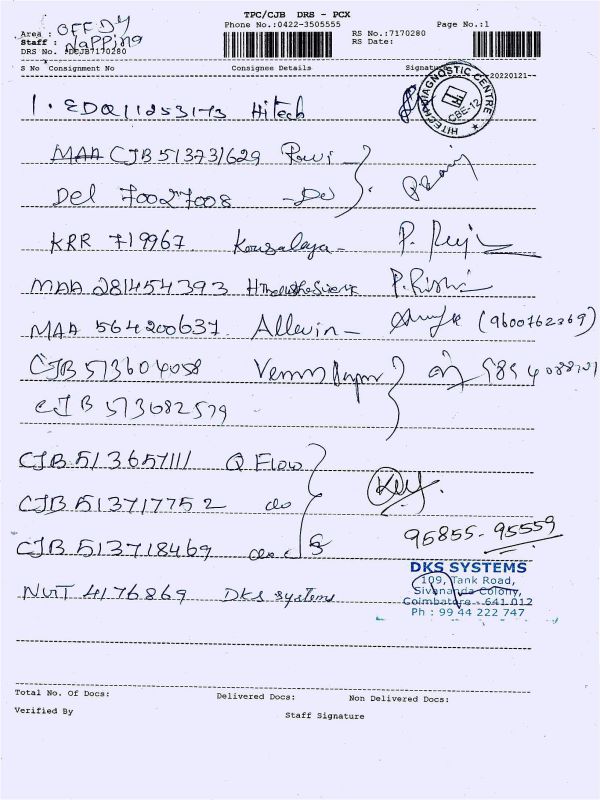 TPC/CJB DRS - PCX
Area : OFF DY
Phone No.:0422-3505555
Page No.:1
Staff : Napping
RS No.:7170280
RS Date:
DRS No. :DCJB7170280
S No Consignment No Consignee Details Signature
20220121
1. EDQ11253173 Hitech
HITECH DIAGNOSTIC CENTRE
CBE-12
MAA CJB 513731629 Ravi
Del 70027008 - Do
KRR 719967 Kousalaya -
MAA 281454393
P. Rishi
MAA 564200637. Allwin - (9600762369)
CJB 513604058
CJB 513682579
CJB 513657111 Q Flow
CJB 513717752 do
CJB 513718469 do
95855-95559
DKS SYSTEMS
109, Tank Road,
Sivananda Colony,
NMT 4176869 DKS systems
Coimbatore - 641 012
Ph : 99 44 222 747
Total No. Of Docs: Delivered Docs: Non Delivered Docs:
Verified By Staff Signature